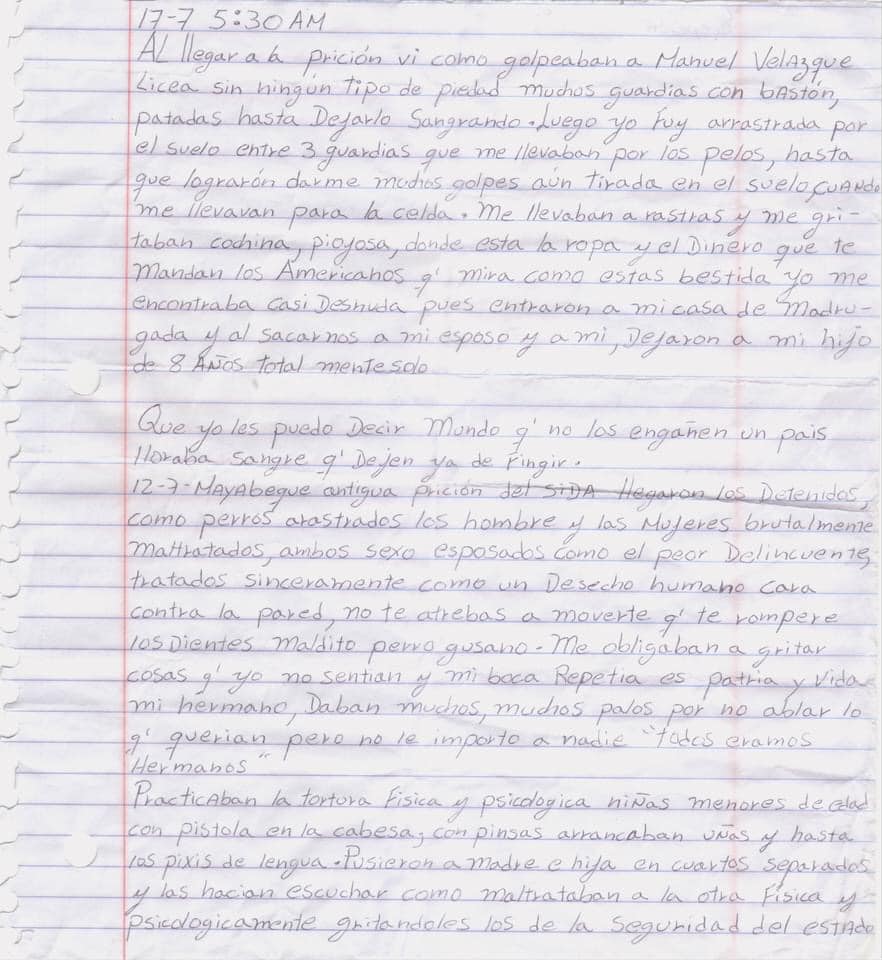 17-7 5:30 AM
AL llegar a la prición vi como golpeaban a Manuel Velazque
Licea sin ningún tipo de piedad muchos guardias con bAstón,
patadas hasta Dejarlo Sangrando. Luego yo Fuy arrastrada por
el suelo entre 3 guardias que me llevaban por los pelos, hasta
que lograrón darme muchos golpes aún tirada en el suelo, CUANDO
me llevavan para la celda. Me llevaban a rastras y me gri-
taban cochina, pioyosa, donde esta la ropa y el Dinero que te
Mandan los Americanos q' mira como estas bestida yo me
encontraba casi Desnuda pues entraron a mi casa de Madru-
gada y al sacarnos a mi esposo y a mi, Dejaron a mi hijo
de 8 AÑos total mente solo
Que yo les puedo Decir Mundo q' no los engañen un pais
lloraba sangre q' Dejen ya de Fingir.
12-7-MAYAbeque antigua prición del SiDA llegaron los Detenidos,
como perros arastrados los hombre y las Mujeres brutalmente
maltratados, ambos sexo esposados como el peor Delincuente,
tratados sinceramente como un Desecho humano cara
contra la pared, no te atrebas a moverte q' te rompere
los Dientes maldito perro gusano. Me obligaban a gritar
cosas q' yo no sentian y mi boca Repetia es patria y vida
mi hermano, Daban muchos, muchos palos por no ablar lo
q' querian pero no le importo a nadie "todos eramos
Hermanos"
PracticAban la tortura Fisica y psicologica niÑas menores de edad
con pistola en la cabesa, con pinsas arrancaban uÑas y hasta
los pixis de lengua. Pusieron a madre e hija en cuartos separados
y las hacian escuchar como maltrataban a la otra Fisica y
psicologicamente gritandoles los de la Seguridad del estado